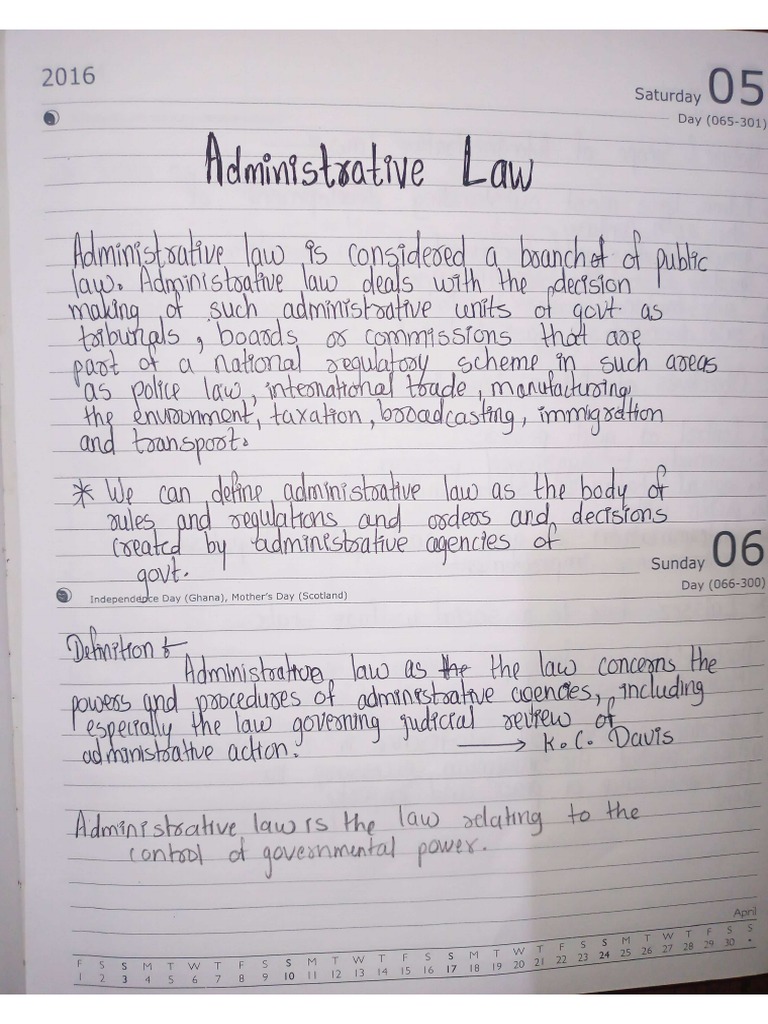 2016
Saturday 05
Day (065-301)
Administrative Law
Administrative law is considered a branch of public
law. Administrative law deals with the decision
making of such administrative units of govt as
tribunals, boards or commissions that are
part of a national regulatory scheme in such areas
as police law, international trade, manufacturing
the environment, taxation, broadcasting, immigration
and transport.
* We can define administrative law as the body of
rules and regulations and orders and decisions
created by administrative agencies of
govt.
Sunday 06
Day (066-300)
Independence Day (Ghana), Mother's Day (Scotland)
Definition :-
Administrative law as the the law concerns the
powers and procedures of administrative agencies, including
especially the law governing judicial review of
admanistrative action.
→ K.C. Davis
Administrative law is the law relating to the
control of governmental power.
April
F S S M T W T F S S M T W T F S S M T W T F S S M T W T F S S
1 2 3 4 5 6 7 8 9 10 11 12 13 14 15 16 17 18 19 20 21 22 23 24 25 26 27 28 29 30 •